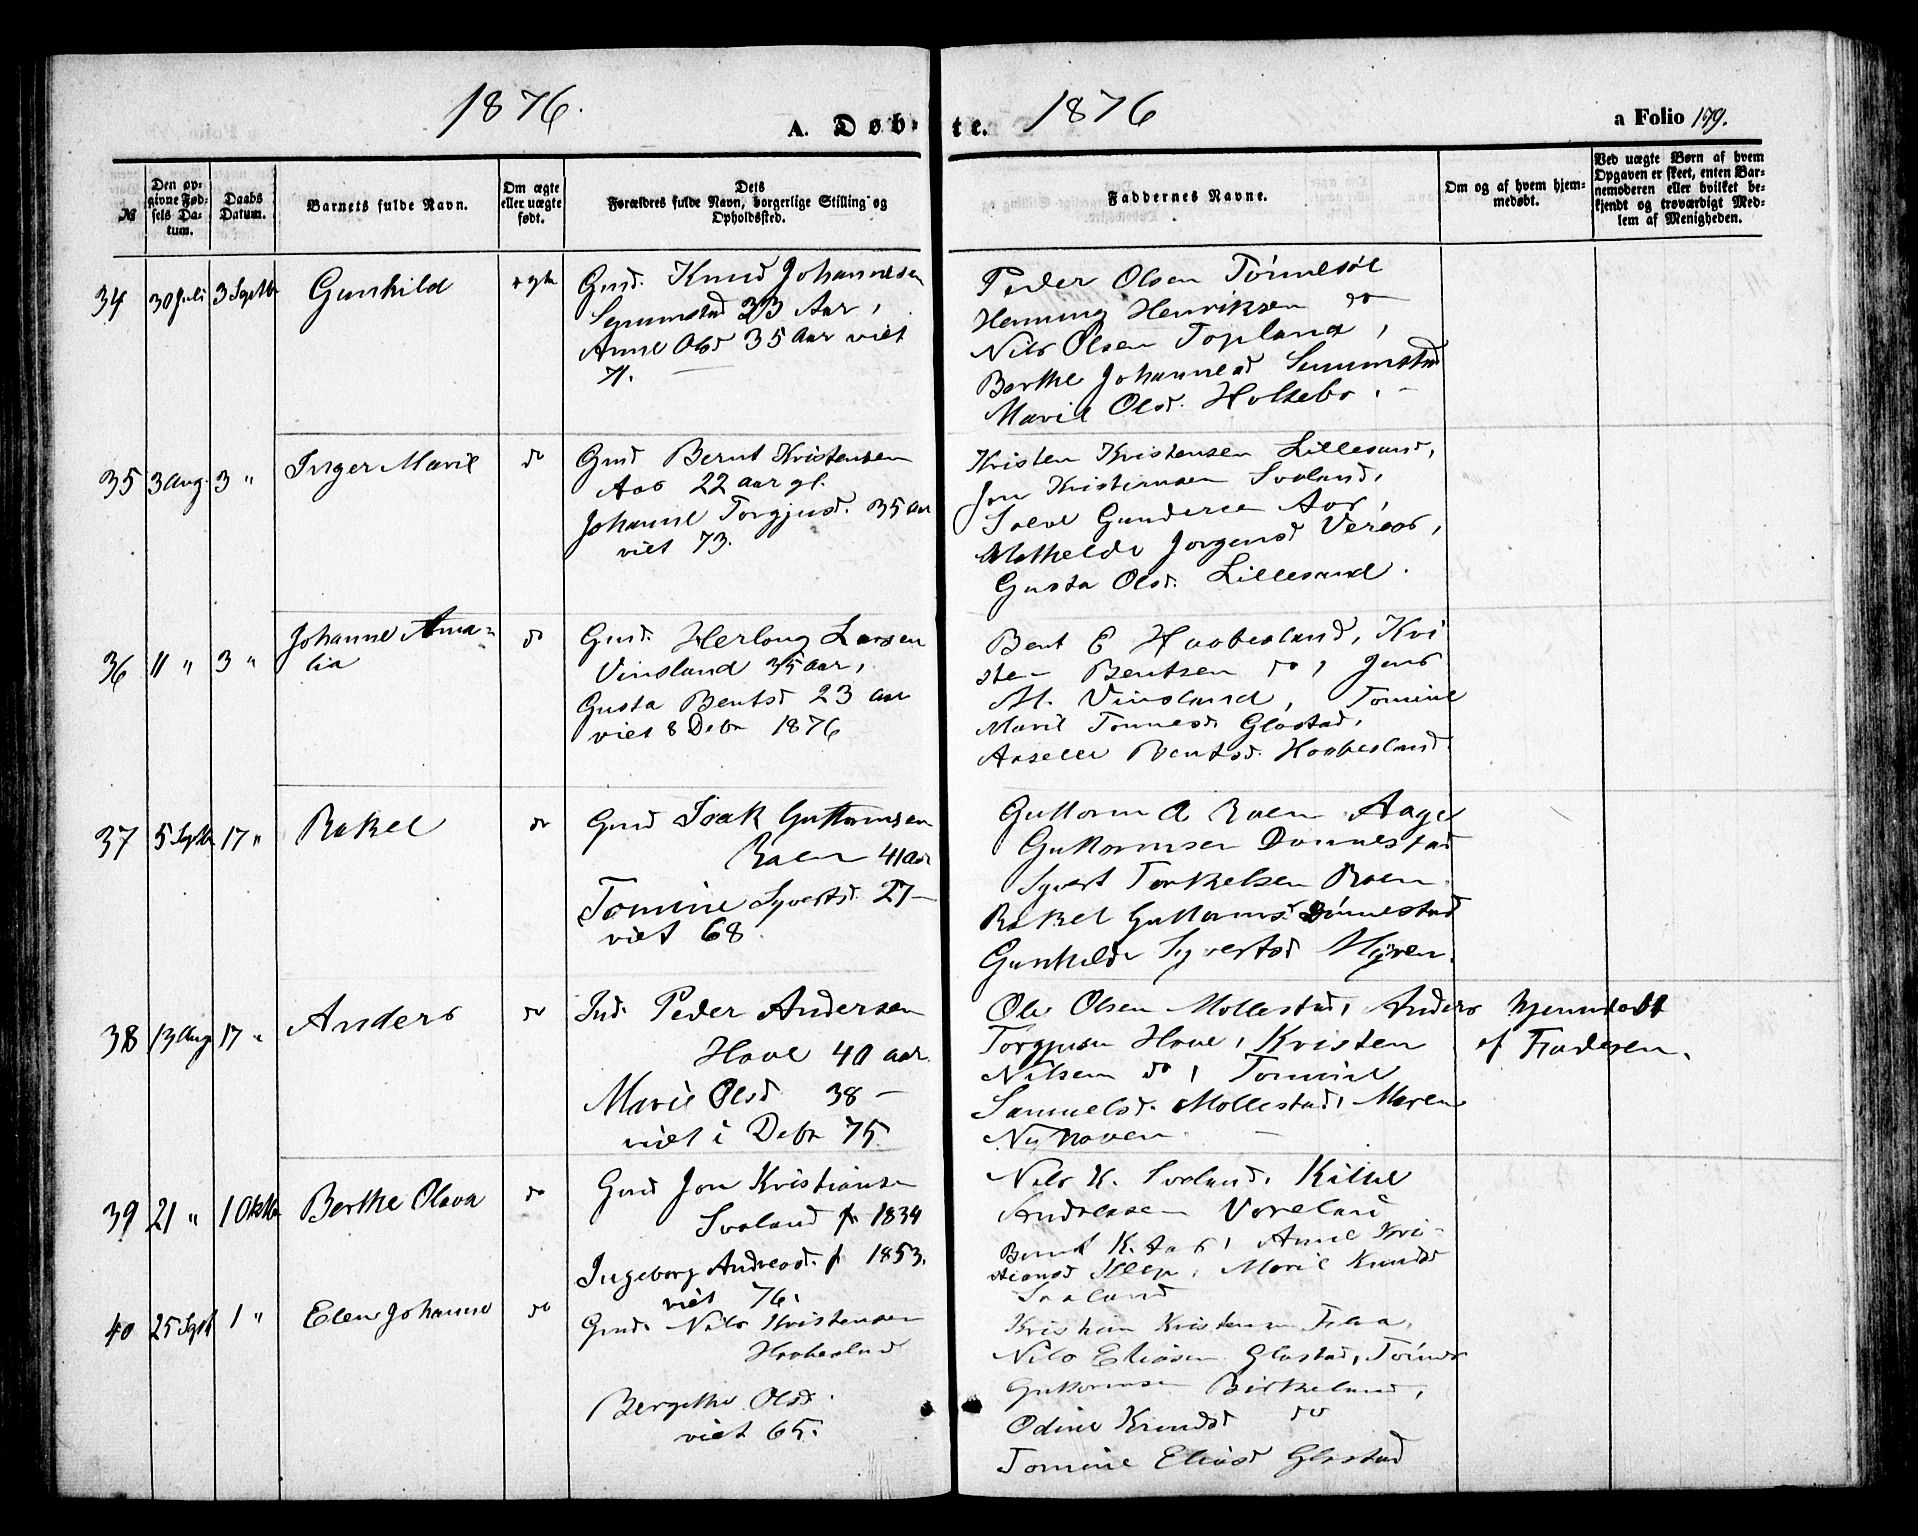 1876.
A. Døb-
te.
1876
a Folio 179.
№
Den opgivne Fødsels Datum.
Daabs Datum.
Barnets fulde Navn.
Om ægte eller uægte født.
Dets Forældres fulde Navn, borgerlige Stilling og Opholdssted.
Faddernes Navne.
Om og af hvem hjemmedøbt.
Ved uægte Børn af hvem Opgaven er skeet, enten Barnemoderen eller hvilket bekjendt og troværdigt Medlem af Menigheden.
34 30 Juli 3 Septbr Gunhild ægte
Gmd. Knud Johannesen
23 Aar,
Anne Olsd 35 Aar viet
71.
Peder Olsen Tønnesøl
Henning Henriksen do
Nils Olsen Topland,
Berthe Johannesd
Marie Olsd. Holtebo.
35 3 Aug. 3 " Inger Marie do
Gmd Bernt Kristensen
Aas 22 aar gl.
Johanne Torgjusd. 35 aar
viet 73.
Kristen Kristensen Lillesand,
Jon Kristensen Svaland,
Salve Gundersen Aas,
Mathelde Jørgensd Veraas,
Gusta Olsd. Lillesand.
36 11 " 3 " Johanne Ama-
lia do
Gmd. Herlong Larsen
Vinsland 35 aar,
Gusta Bentsd 23 aar
viet 8 Debr 1876
Bent E Haabesland, Kri
sten Bentsen do, Jens
M. Vinsland, Tomine
Marie Tønnesd. Glastad,
Aaselle Bentsd. Haabesland.
37 5 Septbr 17 " Rakel do
Gmd Isak Guttormsen
Roen 41 Aar
Tomine Syvertsd. 27 —
viet 68.
Guttorm A Roen Aage
Guttormsen Dønnestad
Syvert Torkelsen Roen.
Rakel Guttormsd Dønnestad
Gunhilde Syvertsd Myren.
38 13 Aug 17 " Anders do
Ind. Peder Andersen
Hove 40 aar.
Marie Olsd 38 —
viet i Debr 75
Ole Olsen Møllestad, Anders
Torgjusen Hove, Kristen
Nilsen do, Tomine
Samuelsd. Møllestad, Maren
Nyhaven.
hjemdøbt
af Faderen.
39 21 " 1 Oktbr Berthe Olava do
Gmd Jon Kristiansen
Svaland f 1834
Ingeborg Andreasd. f 1853.
viet 76.
Nils K. Svaland. Kittel
Andreasen Voreland
Bernt K. Aas, Anne Kri-
stiansd Klep, Marie Knudsd
Svaland
40 25 Sept 1 " Elene Johanne do
Gmd. Nils Kristensen
Haabesland
Bergithe Olsd.
viet 65.
Kristen Kristensen
Nils Eliasen Glastad, Tønnes
Guttormsen Birkeland,
Odine Knudsd do
Tomine Eliasd Glastad